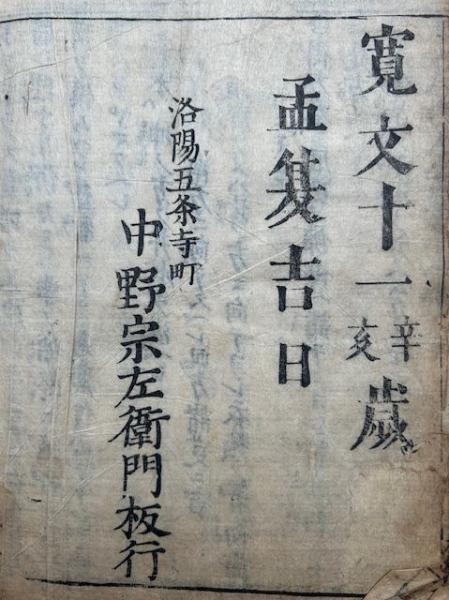 寛文十一辛亥歳
孟夏吉日
洛陽五条寺町
中野宗左衛門板行